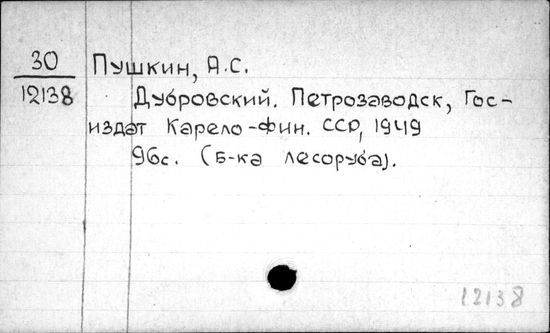 30
12138
Пушкин, А.С.
Дубровский. Петрозаводск, Гос-
издат Карело-фин. ССР, 1949
96с. (Б-ка лесоруба).
12138